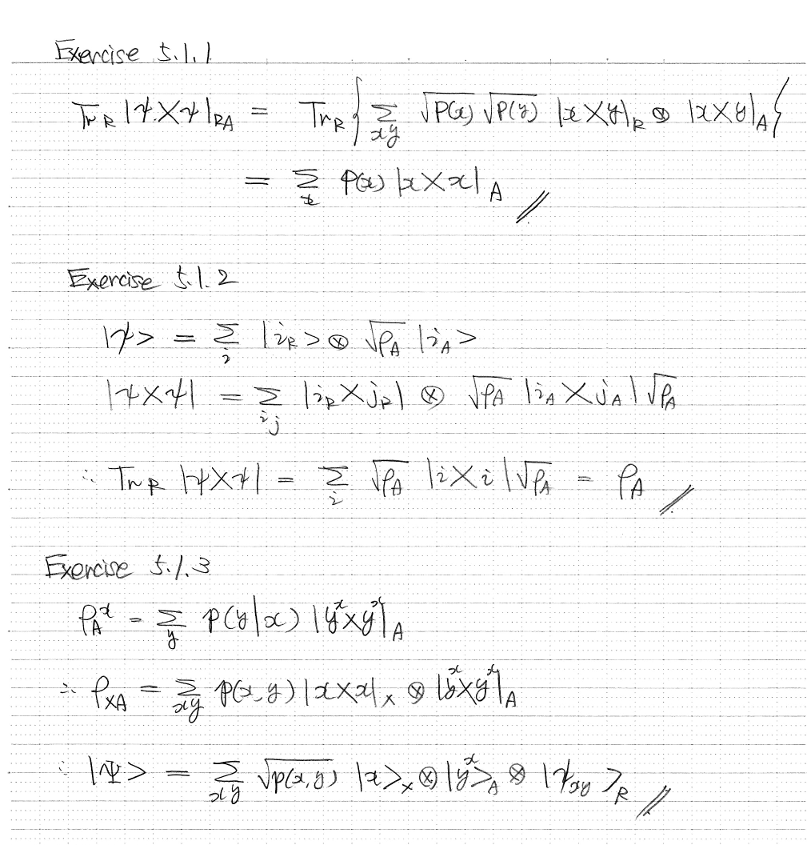 Exercise 5.1.1
Tr_R |ψ⟩⟨ψ|_RA = Tr_R { Σ_xy √p(x) √p(y) |x⟩⟨y|_R ⊗ |x⟩⟨y|_A }
= Σ_x p(x) |x⟩⟨x|_A //
Exercise 5.1.2
|ψ> = Σ_i |i_R> ⊗ √ρ_A |i_A>
|ψ⟩⟨ψ| = Σ_ij |i_R⟩⟨j_R| ⊗ √ρ_A |i_A⟩⟨j_A| √ρ_A
∴ Tr_R |ψ⟩⟨ψ| = Σ_i √ρ_A |i⟩⟨i| √ρ_A = ρ_A //
Exercise 5.1.3
ρ_A^x = Σ_y p(y|x) |y^x⟩⟨y^x|_A
∴ ρ_XA = Σ_xy p(x,y) |x⟩⟨x|_X ⊗ |y^x⟩⟨y^x|_A
∴ |Ψ> = Σ_xy √p(x,y) |x>_X ⊗ |y^x>_A ⊗ |ψ_xy>_R //